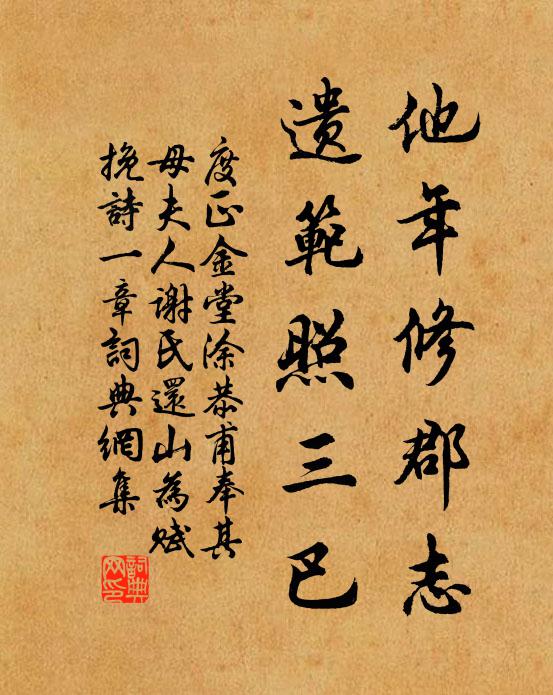 他年修郡志
遺範照三巴
度正金堂涂恭甫奉其
母夫人谢氏還山為赋
挽詩一章詞典網集
詞典网印